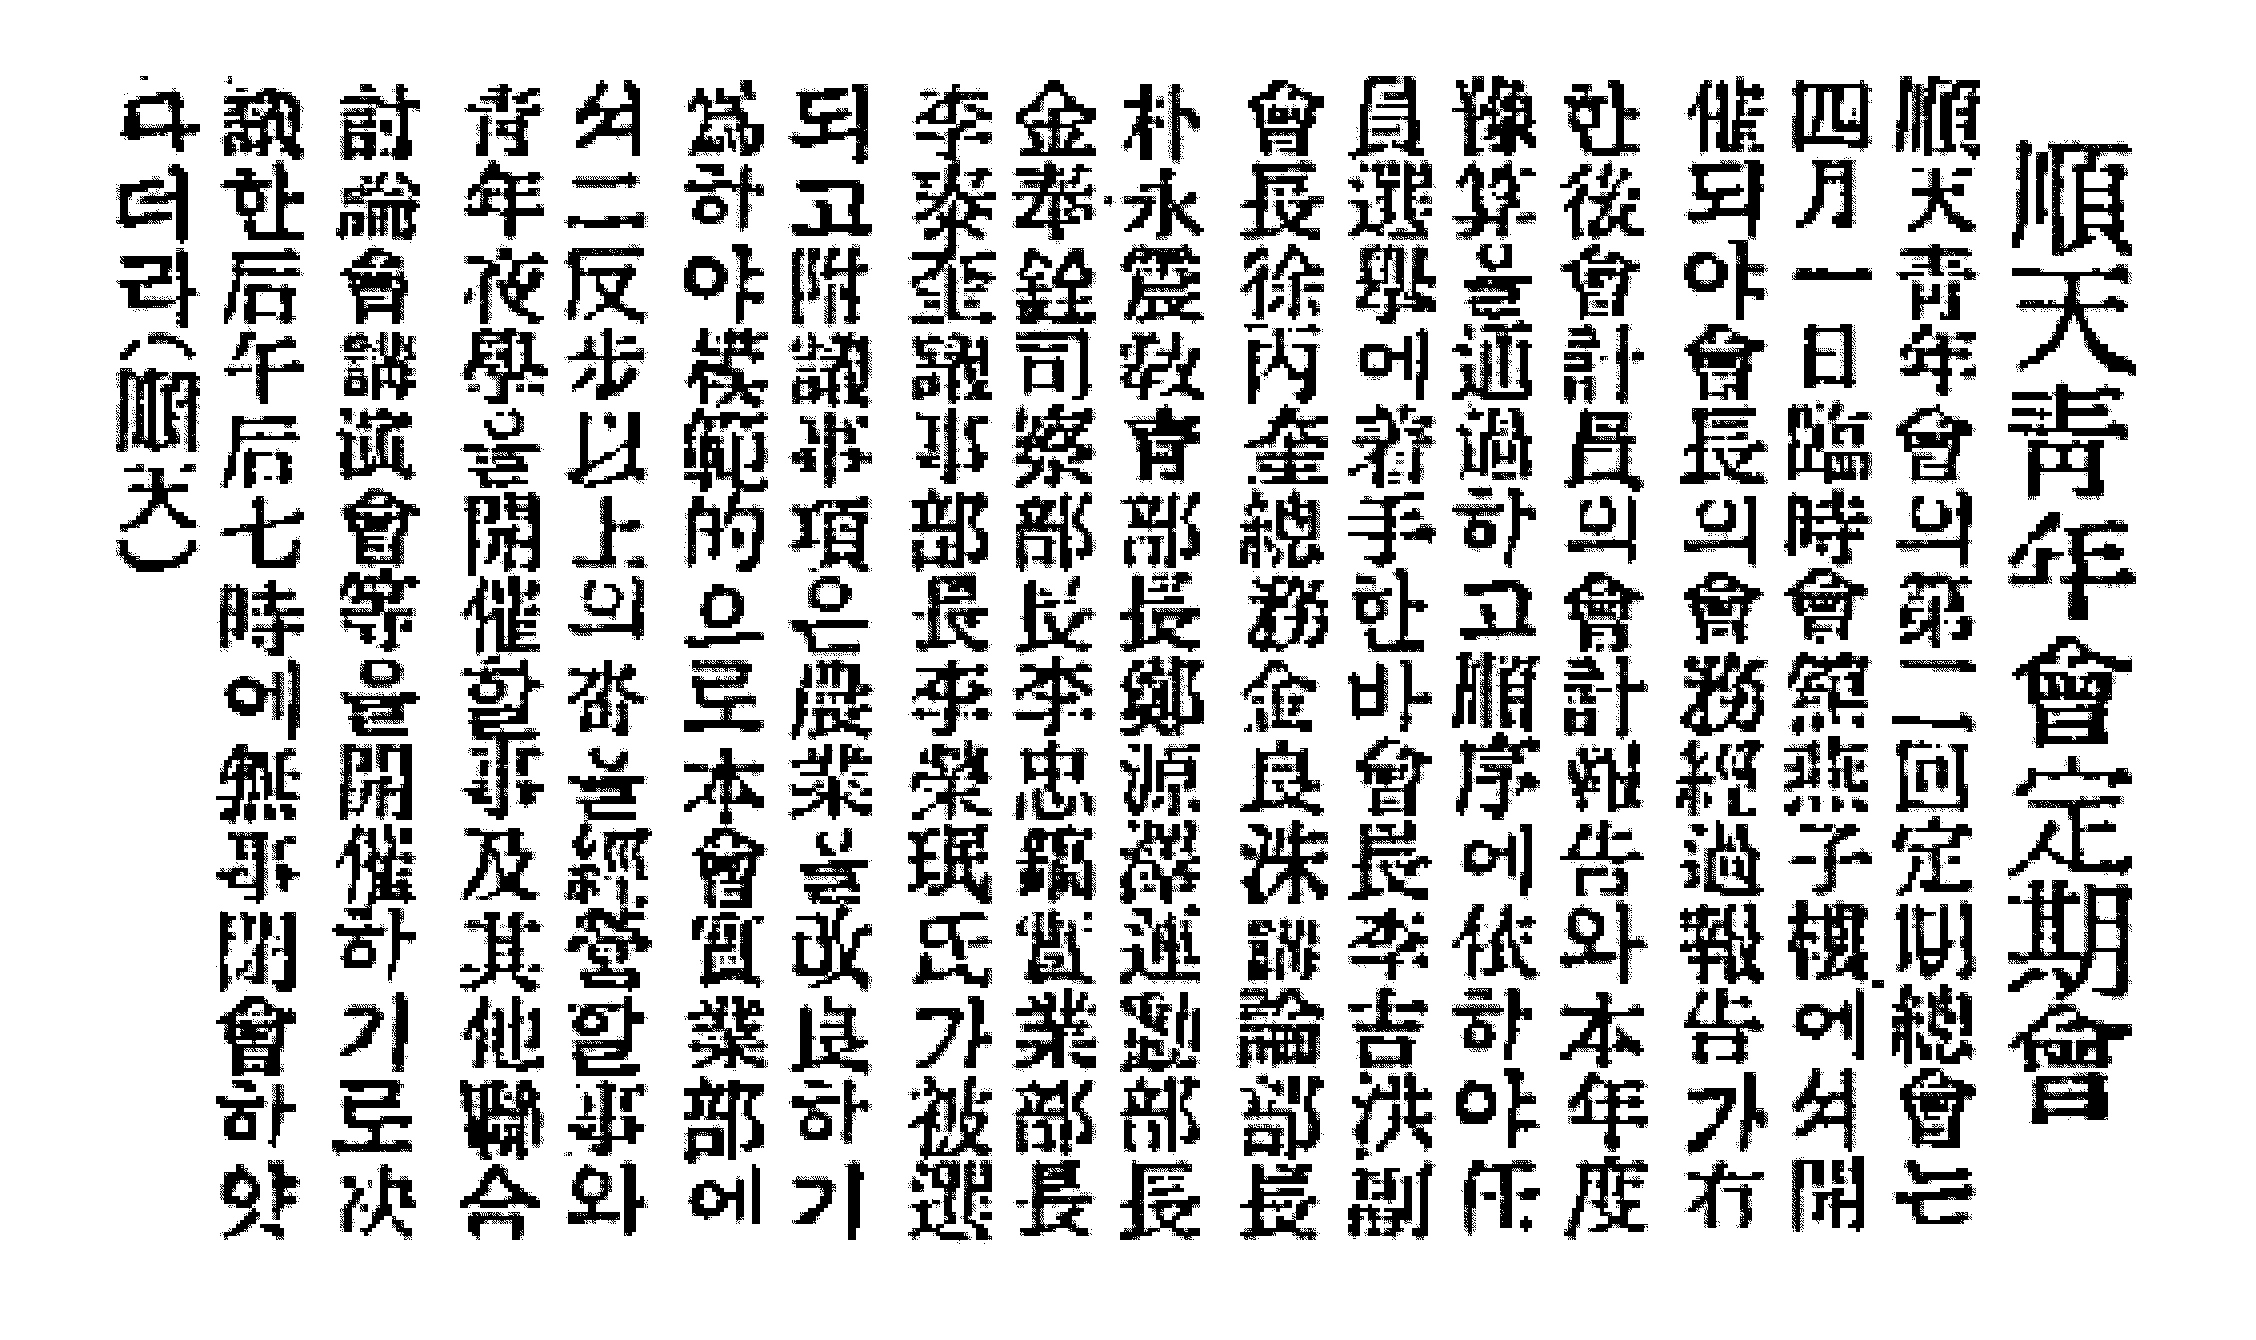 順天靑年會定期會
順天靑年會의第二回定期總會는
四月一日臨時會舘燕子樓에서開
催되야會長의會務經過報告가有
한後會計員의會計報告와本年度
豫算을通過하고順序에依하야任
員選擧에着手한바會長李吉洪副
會長徐丙奎總務金良洙議論部長
朴永震敎育部長鄭源 運動部長
金奉銓司察部長李忠 實業部長
李泰 議事部長李榮珉氏가被選
되고附議事項은農業을改良하기
爲하야模範的으로本會實業部에
서二反步以上의畓을經營할事와
靑年夜學을開催할事及其他聯合
討論會講演會等을開催하기로決
議한后午后七時에無事閉會하얏
다더라(順天)